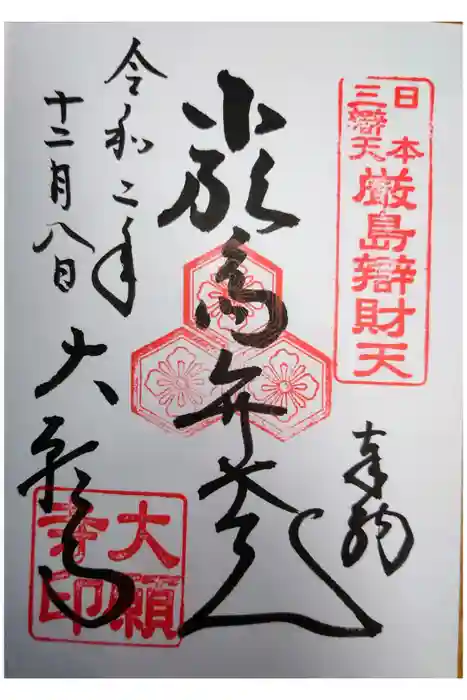 日本
三辯天
厳島辯財天
奉拝
厳島弁
令和二年
十二月八日
大願寺
大願
寺印